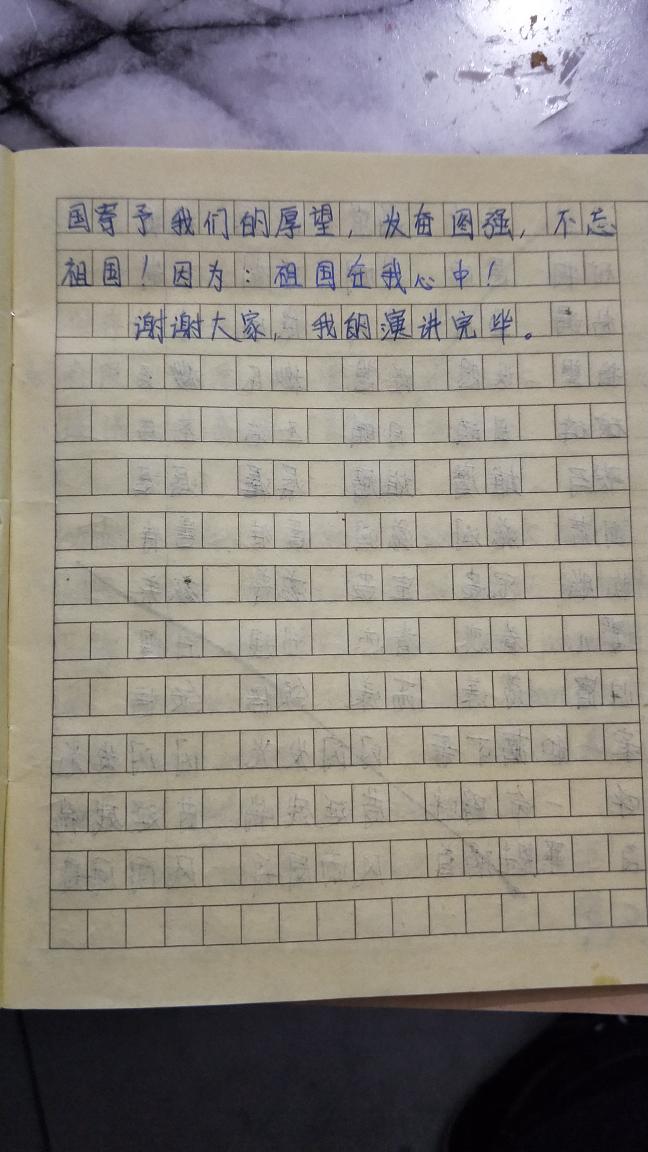 国寄予我们的厚望，发奋图强，不忘
祖国！因为：祖国在我心中！
谢谢大家，我的演讲完毕。